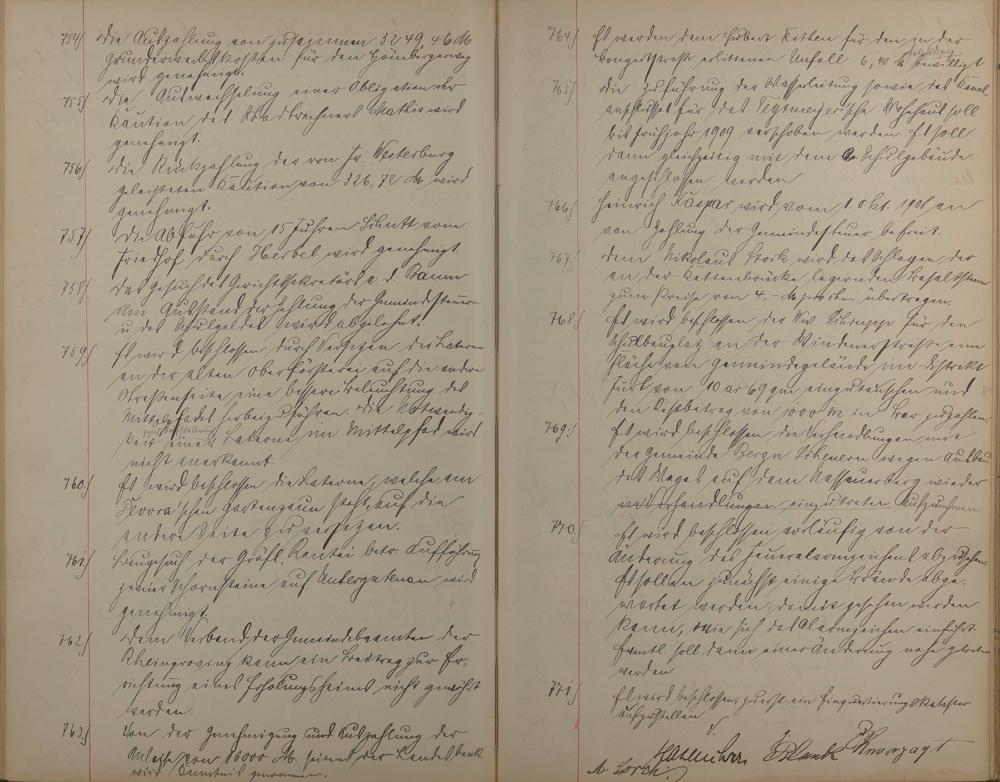 754/ Die Auszahlung von zusammen 3249,46 M
Grunderwerbskosten für den Hömbergerweg
wird genehmigt.
755/ Die Auswechselung einer Obligation der
Kaution des Stadtrechners Mathi wird
genehmigt.
756/ Die Rückzahlung der von Fr. Westerburg
geleisteten Kaution von 326,72 M wird
genehmigt.
757/ Die Abfuhr von 15 Fuhren Schutt vom
Friedhof durch Herbel wird genehmigt.
758/ Das Gesuch des Gerichtssekretärs a. D.
um Ausstand der Zahlung der Gemeindesteuern
u. des Schulgeldes wird abgelehnt.
759/ Es wird beschlossen durch Versetzen der Laterne
an der alten Oberförsterei auf die andere
Straßenseite eine bessere Beleuchtung des
Mittelpfades herbeizuführen. Die Notwendig-
keit einer Laterne im Mittelpfad wird
nicht anerkannt.
760/ Es wird beschlossen die Laterne, welche am
'schen Gartenzaun steht, auf die
andere Seite zu versetzen.
761/ Baugesuch der Gräfl. Rentei betr. Aufführung
zweier Schornsteine auf wird
genehmigt.
762/ Dem Verband der Gemeindebeamten der
Rheinprovinz kann ein Beitrag zur Er-
richtung eines Erholungsheims nicht gewährt
werden.
763/ Von der Genehmigung und Auszahlung der
Anleihe von 16000 M. seitens der Landesbank
wird Kenntnis genommen.
764/ Es werden dem Hubert für den in der
erlittenen Unfall 6,40 M bewilligt
765/ Die Zuführung der Wasserleitung sowie des Kanal-
anschlusses für das 'sche Wohnhaus soll
bis Frühjahr 1909 verschoben werden. Es soll
dann gleichzeitig mit dem Schulgebäude
angeschlossen werden.
766/ Heinrich Kaspar wird vom 1. Okt. 1908 an
von Zahlung der Gemeindesteuer befreit.
767/ Dem Nikolaus Stork wird das Schlagen der
an der Kettenbrücke lagernden Basaltsteine
zum Preise von 4,- M pro cbm übertragen.
768/ Es wird beschlossen der Ww. für den
Schulbauplatz an der Windenerstraße eine
Fläche von Gemeindegelände im Distrikt
von 10 ar 69 qm einzutauschen und
den Restbetrag von 1000 M in bar zu zahlen.
769/ Es wird beschlossen die Verhandlungen mit
der Gemeinde Bergn. Scheuern wegen Ausbau
des Weges auf dem Nassauerberg wieder
aufzunehmen.
770/ Es wird beschlossen vorläufig von der
Änderung des Feueralarmzeichens abzusehen.
Es sollen zunächst einige Brände abge-
wartet werden, damit gesehen werden
kann, wie sich das Alarmzeichen einführt.
Eventl. soll dann einer Änderung nahe getreten
werden
771/ Es wird beschlossen, zuerst ein Einquartierungskataster
aufzustellen.